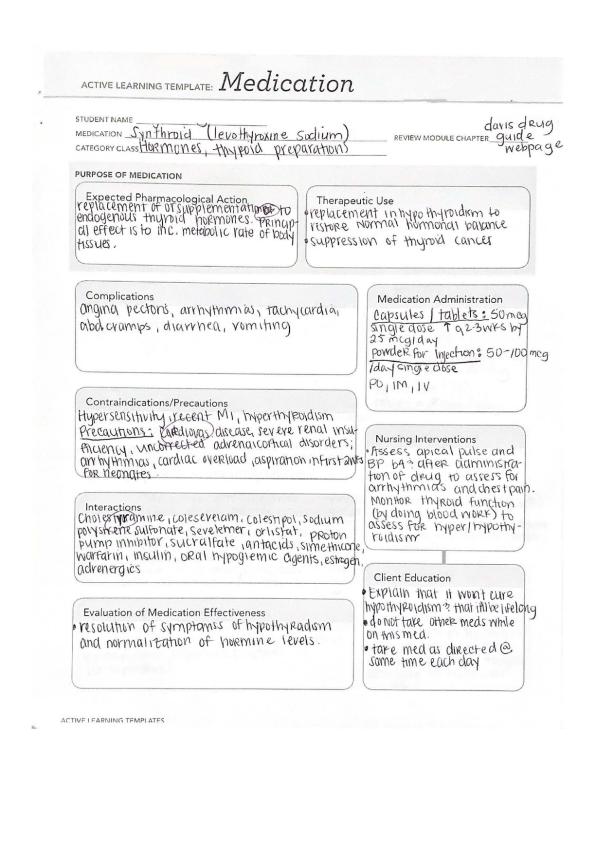 ACTIVE LEARNING TEMPLATE: Medication
STUDENT NAME
MEDICATION Synthroid (levothyroxine sodium)
CATEGORY CLASS Hormones, thyroid preparations
REVIEW MODULE CHAPTER
davis drug
guide
webpage
PURPOSE OF MEDICATION
Expected Pharmacological Action
replacement of or supplementation to
endogenous thyroid hormones. Princip-
al effect is to inc. metabolic rate of body
tissues.
Therapeutic Use
• replacement in hypothyroidism to
restore normal hormonal balance
• suppression of thyroid cancer
Complications
angina pectoris, arrhythmias, tachycardia,
abd cramps, diarrhea, vomiting
Medication Administration
Capsules / tablets: 50 mcg
single dose ↑ q 2-3 wks by
25 mcg/day
Powder for Injection: 50-100 mcg
/day single dose
PO, IM, IV
Contraindications/Precautions
Hypersensitivity, recent MI, hyperthyroidism
Precautions: Cardiovas disease, severe renal insu-
fficiency, uncorrected adrenalcortical disorders;
arrhythmias, cardiac overload, aspiration in first
for neonates.
Nursing Interventions
• Assess apical pulse and
BP b4 & after administra-
tion of drug to assess for
arrhythmias and chest pain.
Monitor thyroid function
(by doing blood work) to
assess for hyper/hypothy-
roidism
Interactions
Cholestyramine, colesevelam, colestipol, sodium
polystrene sulfonate, sevelemer, orlistat, proton
pump inhibitor, sucralfate, antacids, simethicone,
warfarin, insulin, oral hypoglemic agents, estrogen,
adrenergics
Client Education
• Explain that it wont cure
hypothyroidism & that itll be lifelong
• do not take other meds while
on this med.
• take med as directed @
same time each day
Evaluation of Medication Effectiveness
• resolution of symptoms of hypothyroidism
and normalization of hormone levels.
ACTIVE LEARNING TEMPLATES